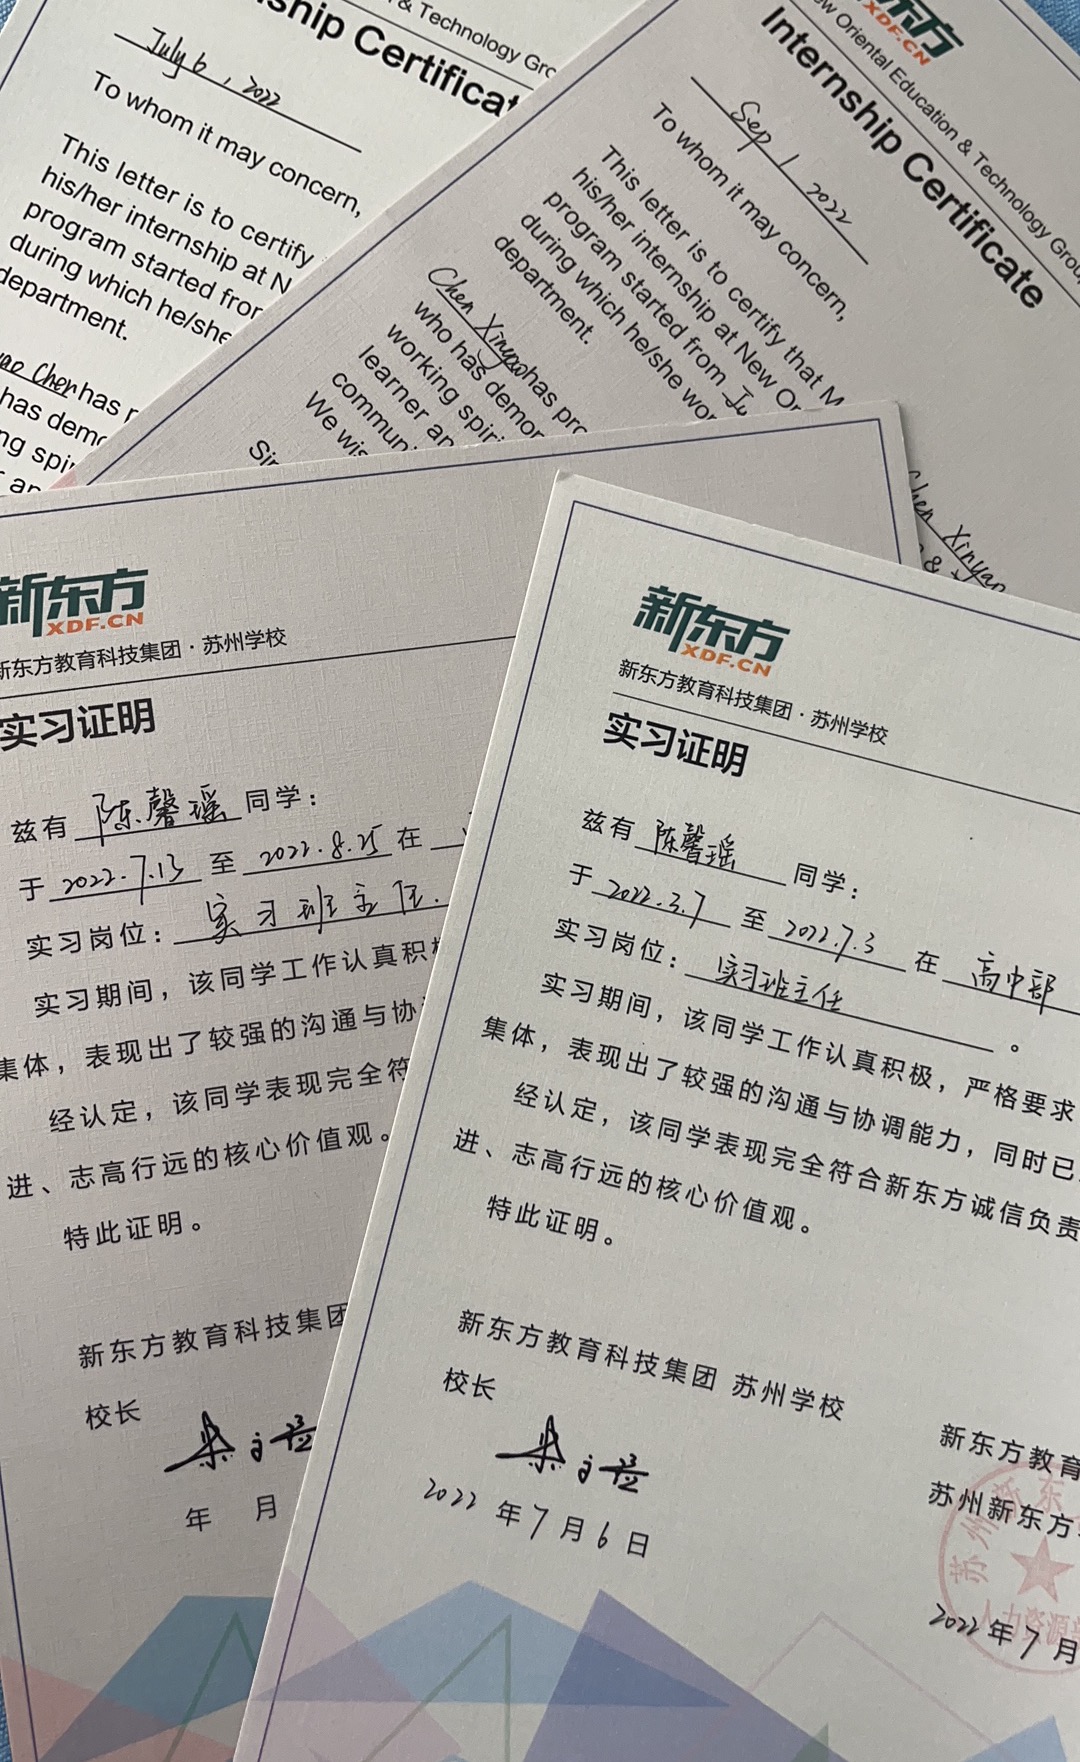 & Technology Gro
ship Certificat
July 6, 2022
To whom it may concern,
This letter is to certify
his/her internship at N
program started from
during which he/she
department.
Chen has
has demo
ng spir
an
新东方
XDF.CN
New Oriental Education & Technology Group
Internship Certificate
Sep 1 2022
To whom it may concern,
This letter is to certify that M
his/her internship at New Or
program started from Ju
during which he/she wor
department.
Chen Xinyao has pro
who has demon
working spiri
learner an
communi
We wis
Sin
Chen Xinyao
新东方
XDF.CN
新东方教育科技集团·苏州学校
实习证明
兹有 陈馨瑶 同学:
于 2022.7.13 至 2022.8.25 在
实习岗位: 实习班主任.
实习期间,该同学工作认真积极
集体,表现出了较强的沟通与协
经认定,该同学表现完全符
进、志高行远的核心价值观。
特此证明。
新东方教育科技集团
校长
年 月
新东方
XDF.CN
新东方教育科技集团·苏州学校
实习证明
兹有 陈馨瑶 同学:
于 2022.3.7 至 2022.7.3 在 高中部
实习岗位: 实习班主任 。
实习期间,该同学工作认真积极,严格要求
集体,表现出了较强的沟通与协调能力,同时已
经认定,该同学表现完全符合新东方诚信负责
进、志高行远的核心价值观。
特此证明。
新东方教育科技集团 苏州学校
校长
2022年7月6日
新东方教育
苏州新东方
苏州新东
人力资源部
2022年7月